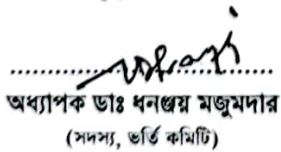 অধ্যাপক ডাঃ ধনঞ্জয় মজুমদার
(সদস্য, ভর্তি কমিটি)